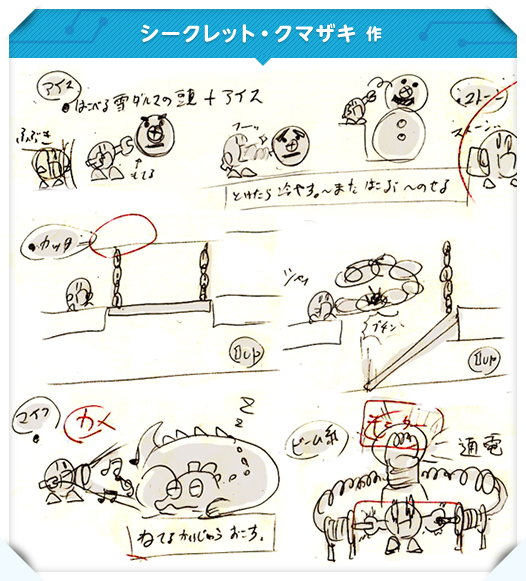 シークレット・クマザキ 作
アイス
はこべる雪ダルマの頭+アイス
ふぶき
もてる
フーッ
とけたら冷やす。〜またはこぶ〜のせる
ストーン
ストーン
カッタ
1UP
1UP
マイク
カメ
ねてるかいじゅうおこす。
ビーム紙
モニター
通電